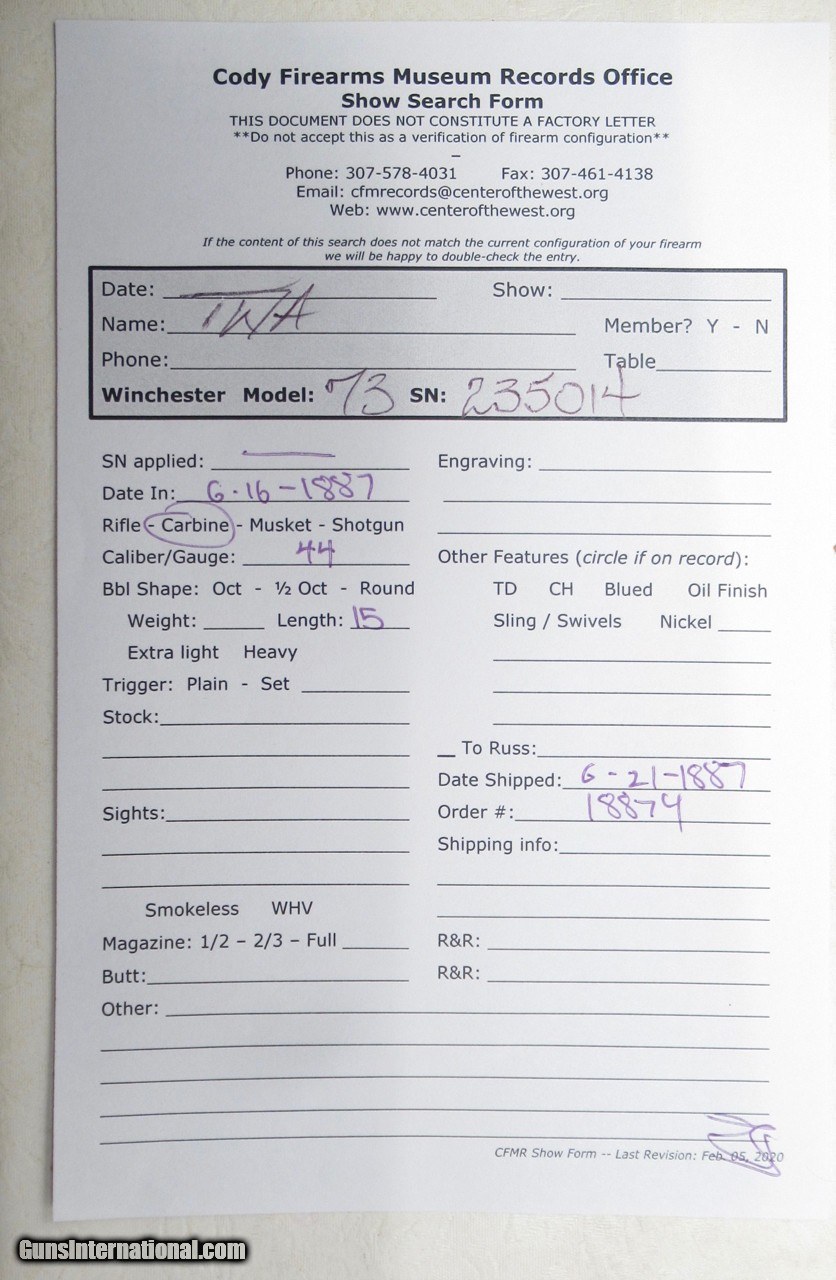 Cody Firearms Museum Records Office
Show Search Form
THIS DOCUMENT DOES NOT CONSTITUTE A FACTORY LETTER
**Do not accept this as a verification of firearm configuration**
Phone: 307-578-4031 Fax: 307-461-4138
Email: cfmrecords@centerofthewest.org
Web: www.centerofthewest.org
If the content of this search does not match the current configuration of your firearm
we will be happy to double-check the entry.
Date: Show:
Name: TWA Member? Y - N
Phone: Table
Winchester Model: 73 SN: 235014
SN applied: Engraving:
Date In: 6-16-1887
Rifle - Carbine - Musket - Shotgun
Caliber/Gauge: 44 Other Features (circle if on record):
Bbl Shape: Oct - ½ Oct - Round TD CH Blued Oil Finish
Weight: Length: 15 Sling / Swivels Nickel
Extra light Heavy
Trigger: Plain - Set
Stock:
To Russ:
Date Shipped: 6-21-1887
Sights: Order #: 18874
Shipping info:
Smokeless WHV
Magazine: 1/2 – 2/3 – Full R&R:
Butt: R&R:
Other:
CFMR Show Form -- Last Revision: Feb. 05, 2020
GunsInternational.com